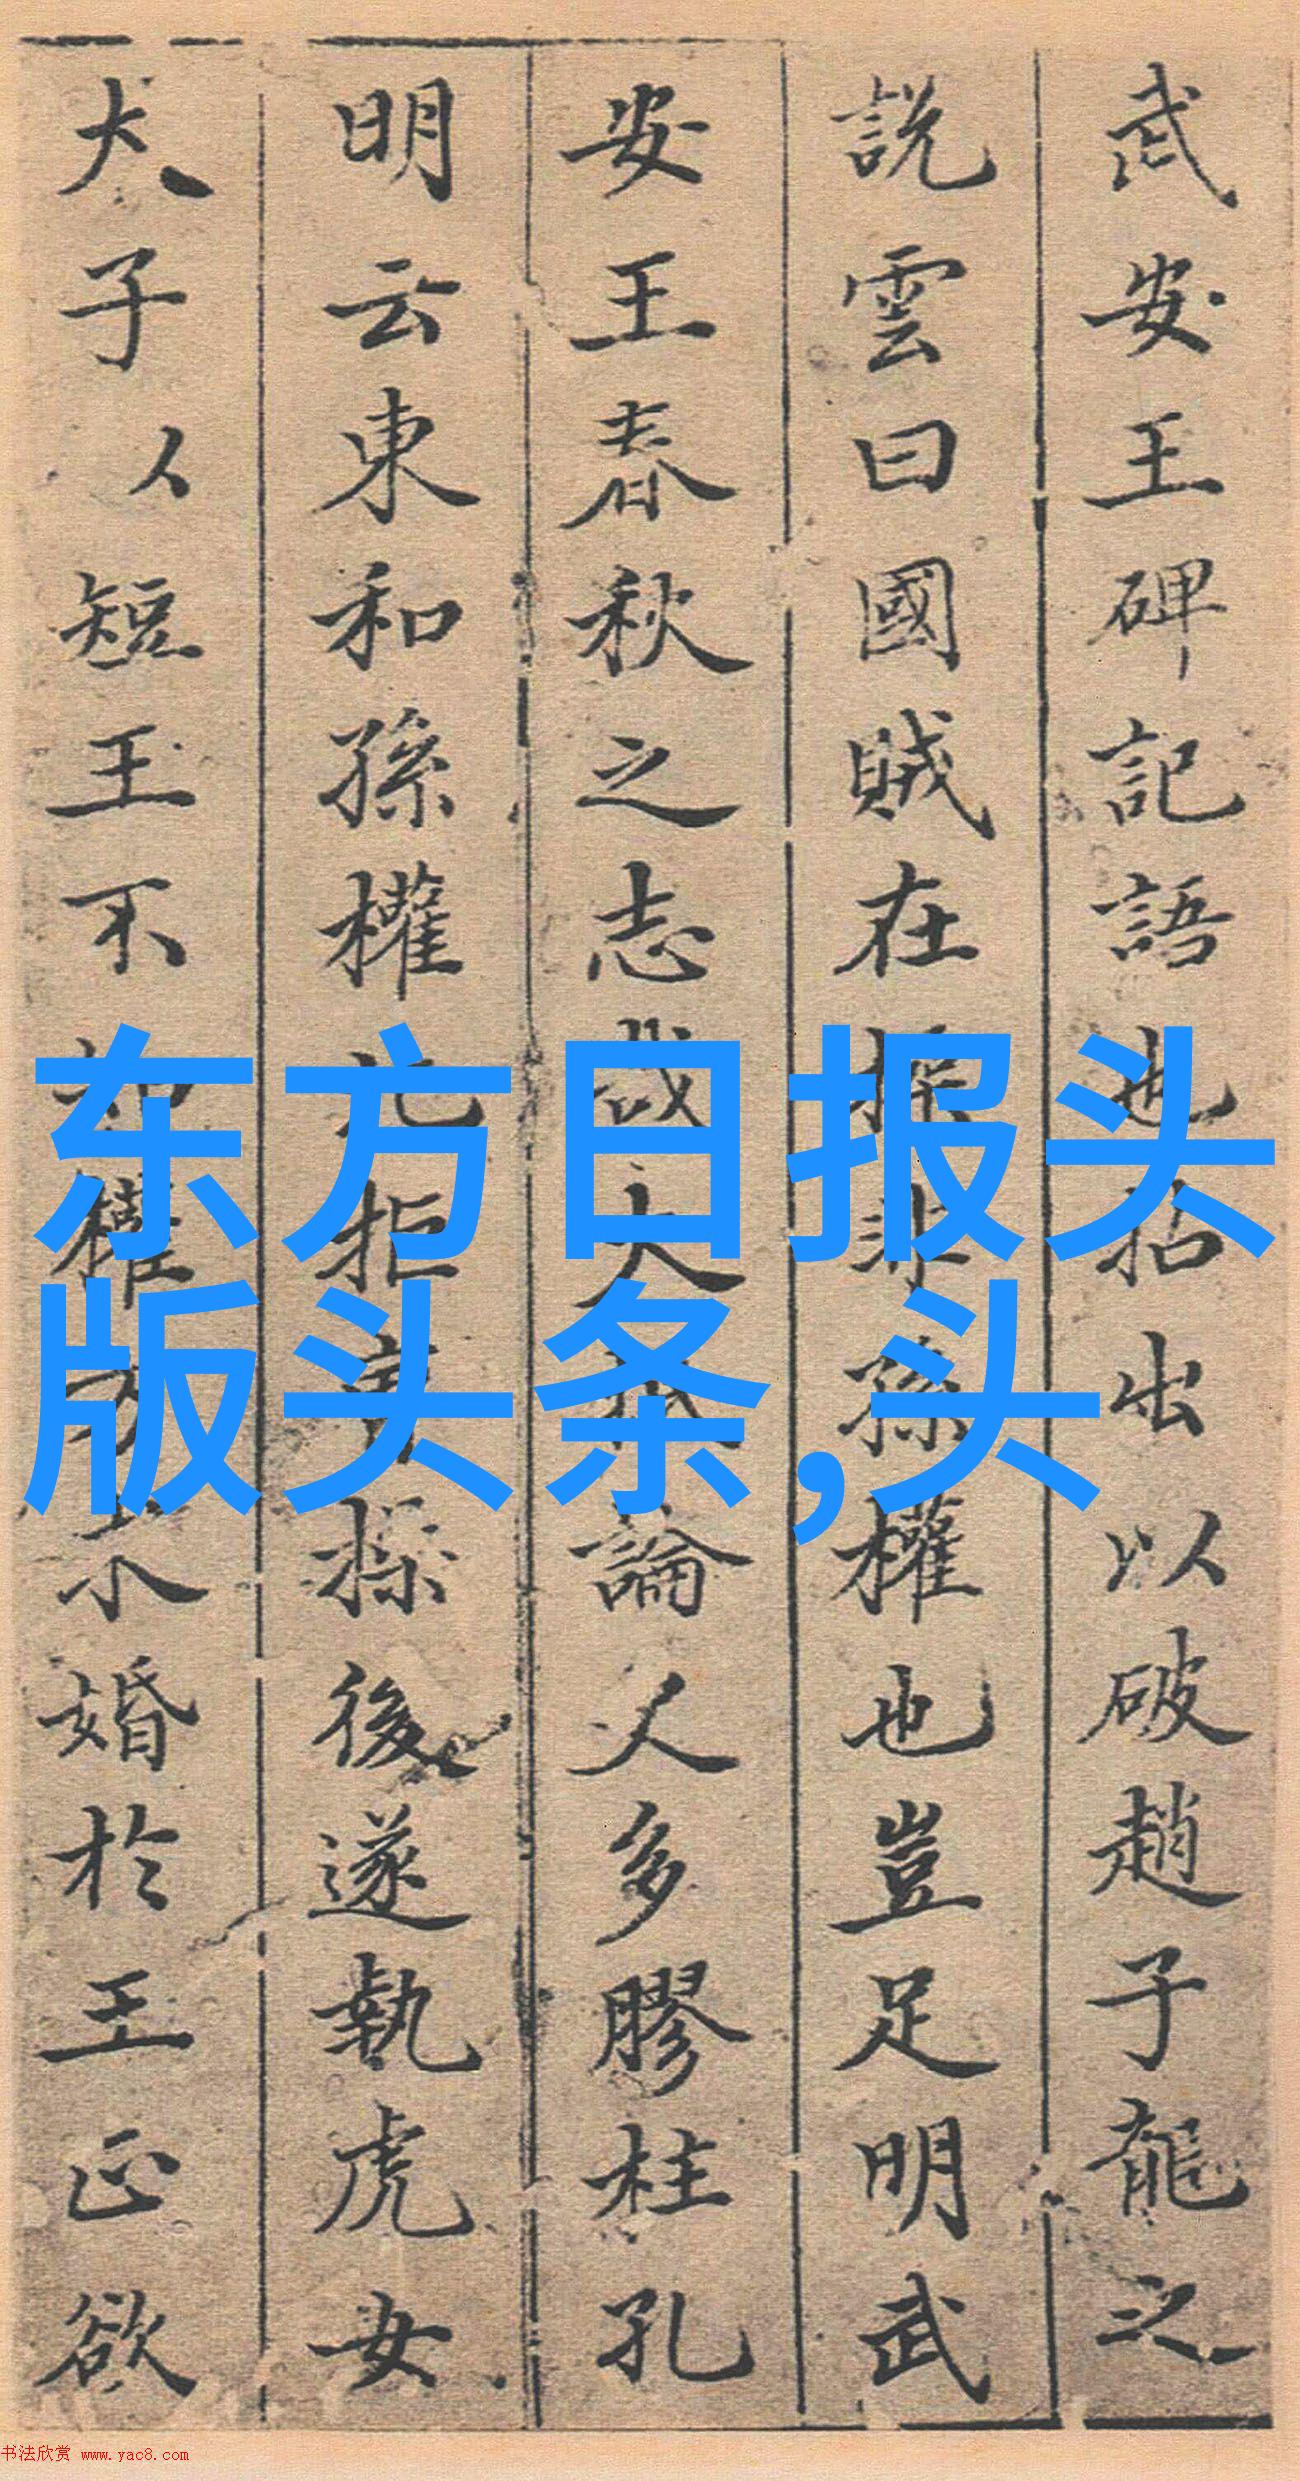 武安王碑記語也拈出以破趙子龍之
說雲曰國賊在操非孫權也豈足明武
安王春秋之志哉大論人多膠柱孔
明云東和孫權北拒曹操後遂執虎女
犬子以短王不知權方求婚於王正欲
东方日报头
版头条,头
书法欣赏 www.yac8.com